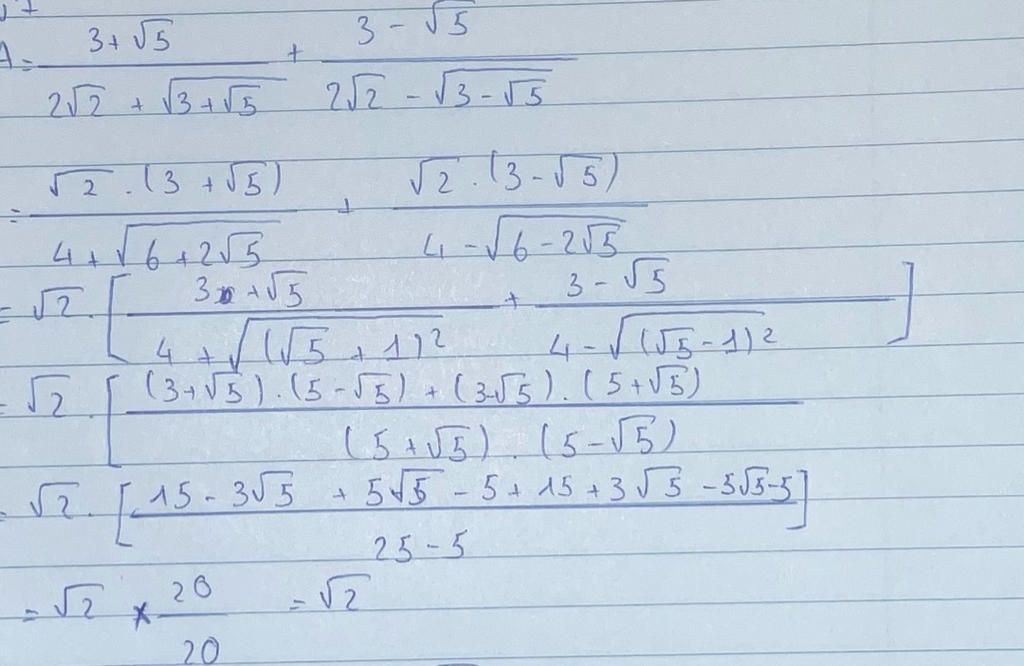 A = (3 + √5)/(2√2 + √(3 + √5)) + (3 - √5)/(2√2 - √(3 - √5))
= (√2 . (3 + √5))/(4 + √(6 + 2√5)) + (√2 . (3 - √5))/(4 - √(6 - 2√5))
= √2 . [(3 + √5)/(4 + √((√5 + 1)²)) + (3 - √5)/(4 - √((√5 - 1)²))]
= √2 . [((3 + √5) . (5 - √5) + (3 - √5) . (5 + √5))/((5 + √5) . (5 - √5))]
= √2 . [(15 - 3√5 + 5√5 - 5 + 15 + 3√5 - 5√5 - 5)/(25 - 5)]
= √2 × 20/20 = √2